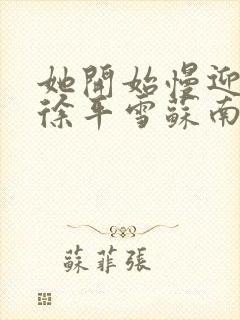 她開始慢迎
徐平雪蘇南
蘇菲張